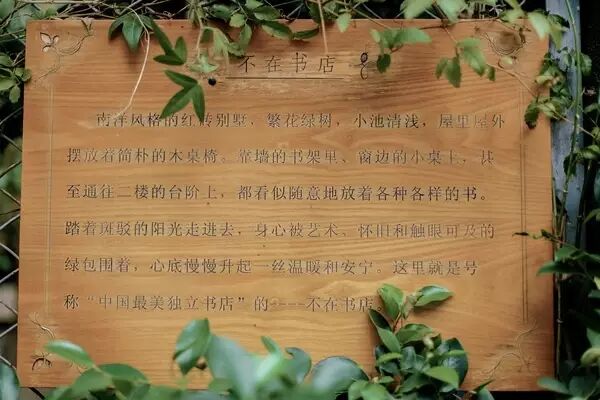 不在书店
南洋风格的红砖别墅、繁花绿树，小池清浅，屋里屋外
摆放着简朴的木桌椅。靠墙的书架里、窗边的小桌上，甚
至通往二楼的台阶上，都看似随意地放着各种各样的书。
踏着斑驳的阳光走进去，身心被艺术、怀旧和触眼可及的
绿包围着，心底慢慢升起一丝温暖和安宁。这里就是号
称“中国最美独立书店”的——不在书店